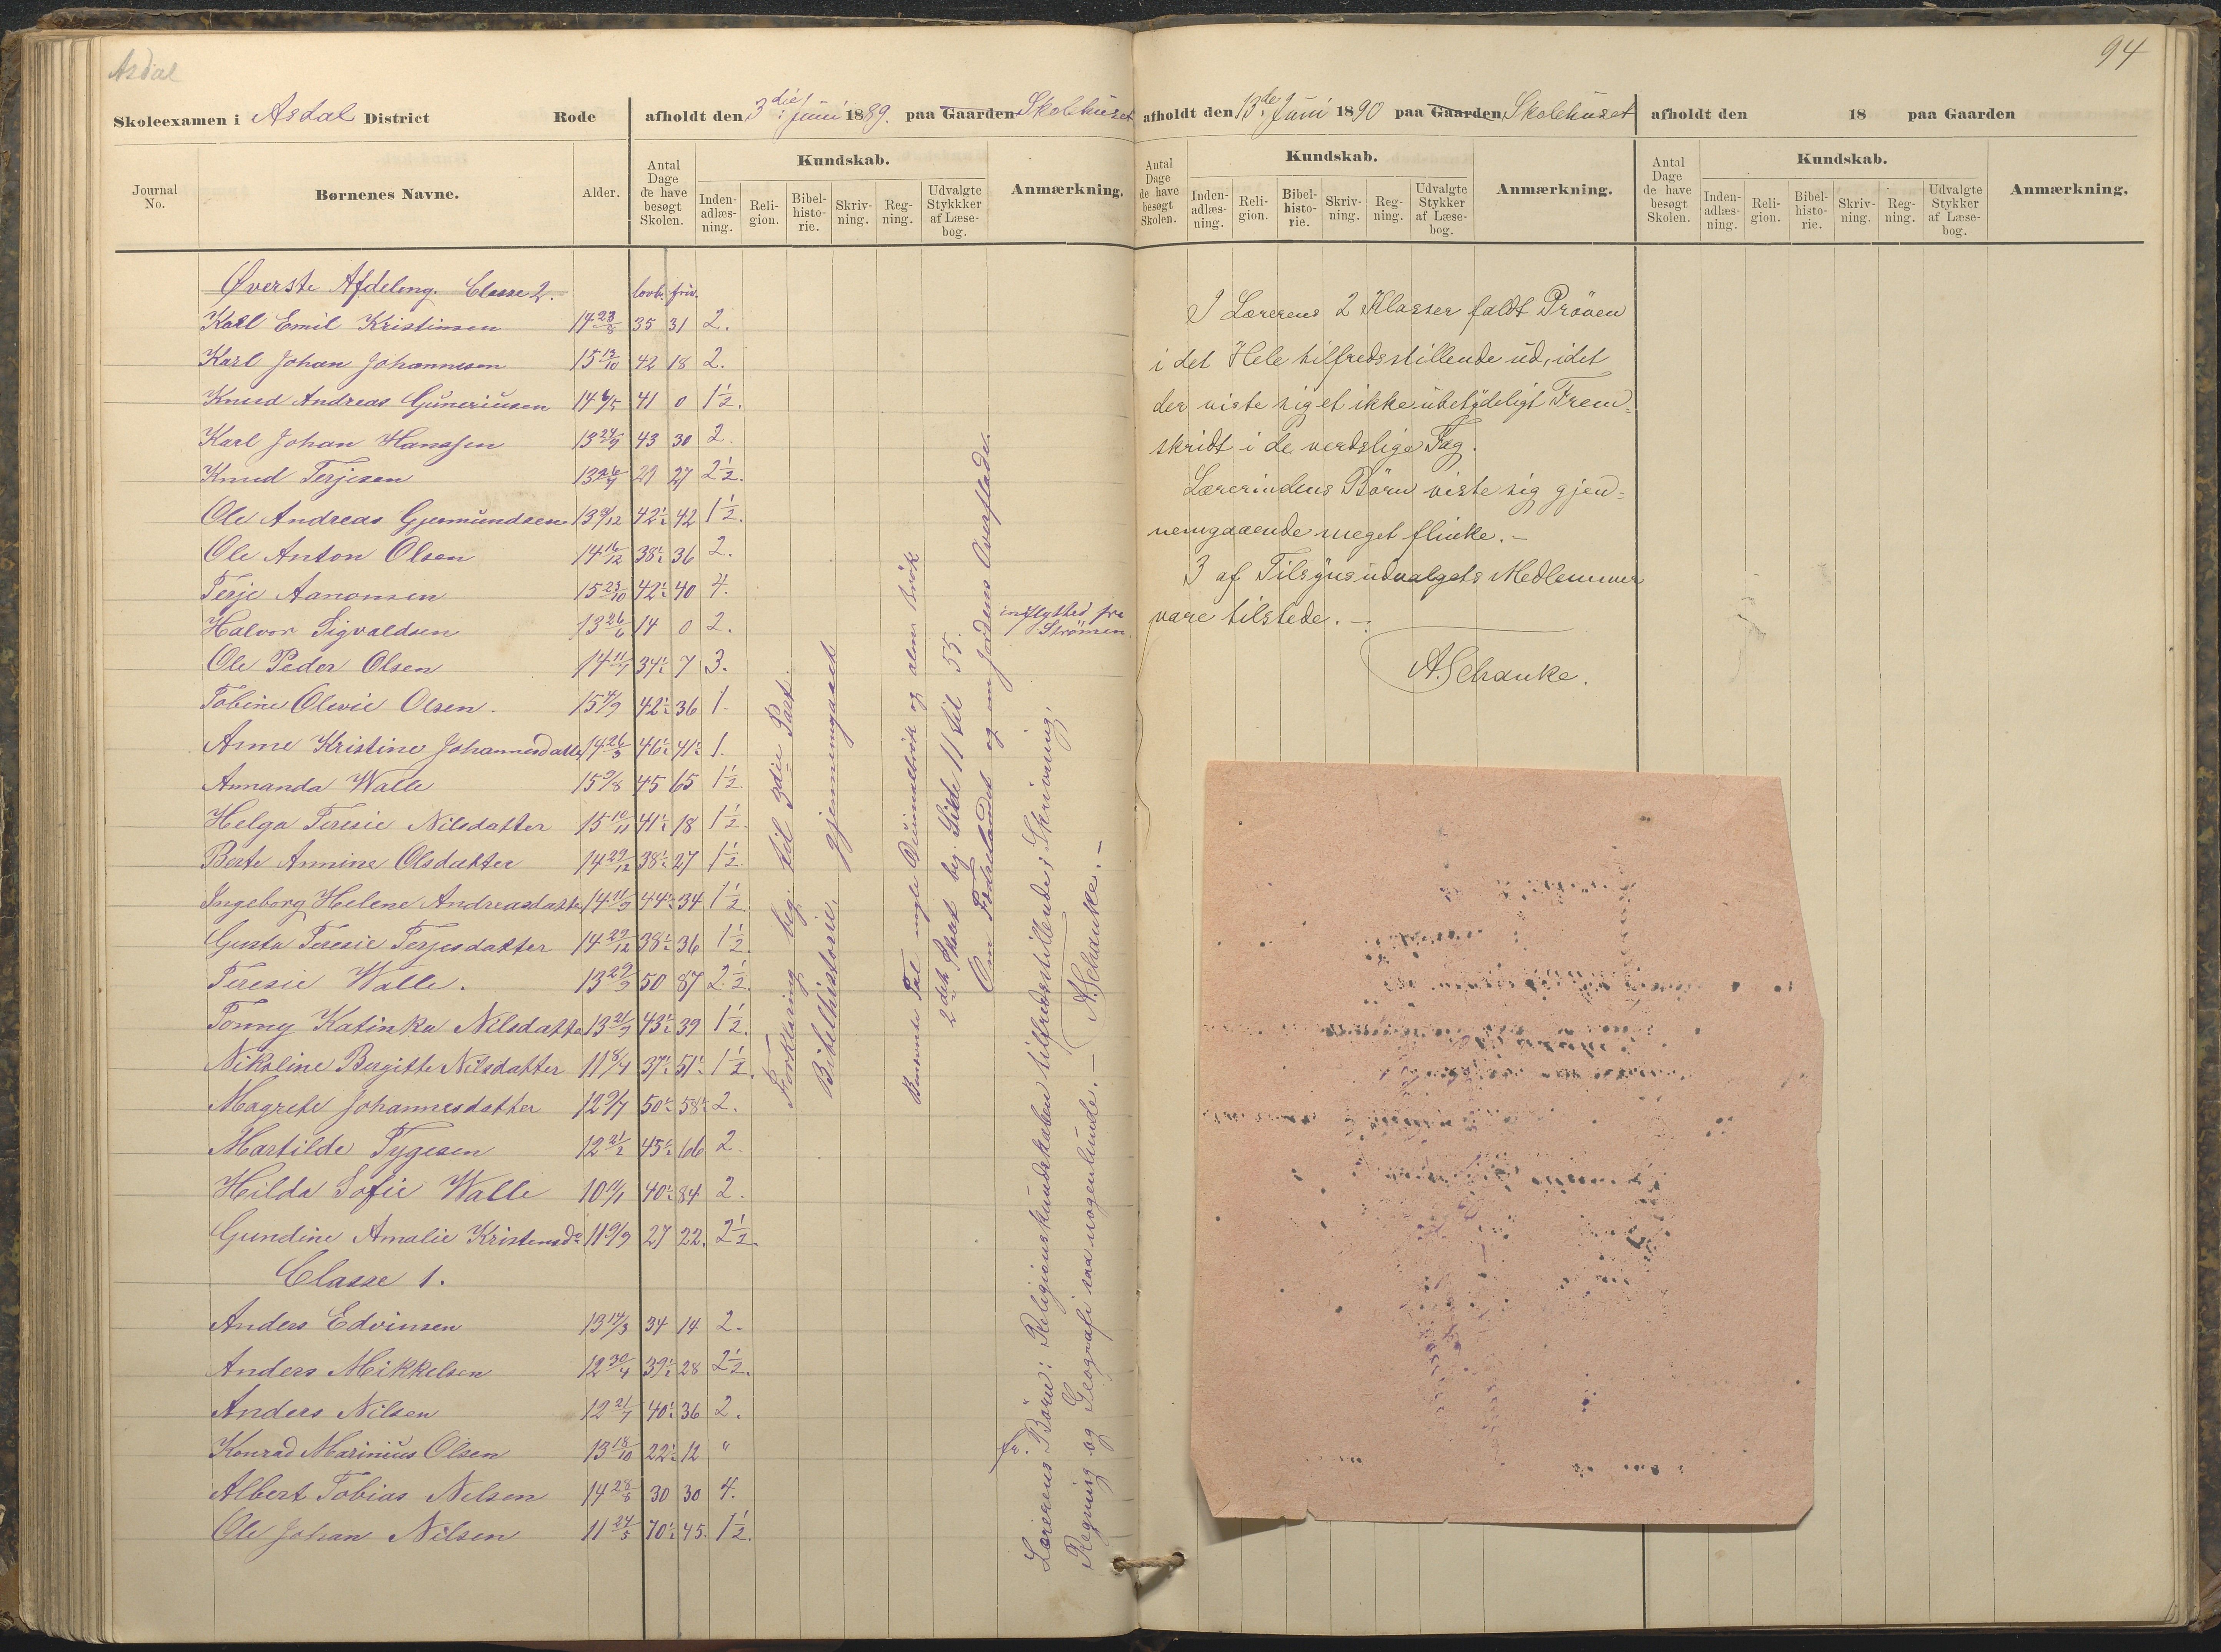 Asdal
94
Skoleexamen i Asdal District Rode afholdt den 3die Juni 1889. paa Gaarden Skolehuset
afholdt den 13de Juni 1890 paa Gaarden Skolehuset afholdt den 18 paa Gaarden
Journal No. Børnenes Navne. Alder. Antal Dage de have besøgt Skolen. Kundskab. Inden-adlæs-ning. Reli-gion. Bibel-histo-rie. Skriv-ning. Reg-ning. Udvalgte Stykkker af Læse-bog. Anmærkning.
Antal Dage de have besøgt Skolen. Kundskab. Inden-adlæs-ning. Reli-gion. Bibel-histo-rie. Skriv-ning. Reg-ning. Udvalgte Stykker af Læse-bog. Anmærkning.
Antal Dage de have besøgt Skolen. Kundskab. Inden-adlæs-ning. Reli-gion. Bibel-histo-rie. Skriv-ning. Reg-ning. Udvalgte Stykker af Læse-bog. Anmærkning.
Øverste Afdeling. Classe 2. lovb. friv.
Karl Emil Kristinsen 14 23/8 35 31 2.
Karl Johan Johannesen 15 12/10 42 18 2.
Knud Andreas Guneriusen 14 6/5 41 0 1½.
Karl Johan Hanssen 13 24/9 43 30 2.
Knud Terjesen 13 26/9 29 27 2½.
Ole Andreas Gjermundsen 13 9/12 42½ 42 1½.
Ole Anton Olsen 14 16/12 38½ 36 2.
Terje Aanonsen 15 23/10 42½ 40 4.
Halvor Sigvaldsen 13 26/6 14 0 2. indflyttet fra Strömmen
Ole Peder Olsen 14 11/7 34½ 7 3.
Tobine Olevie Olsen. 15 4/9 42½ 36 1.
Anne Kristine Johannesdatter 14 26/3 46½ 41½ 1.
Amanda Walle 15 9/8 45 65 1½.
Helga Teresie Nilsdatter 15 10/11 41½ 18 1½.
Berte Annine Olsdatter 14 29/12 38½ 27 1½.
Ingeborg Helene Andreasdatter 14 11/9 44½ 34 1½.
Gusta Teresie Terjesdatter 14 29/12 38½ 36 1½.
Teresie Walle. 13 29/9 50 87 2½.
Tonny Katinka Nilsdatter 13 21/9 43½ 39 1½.
Nikoline Bergitte Nilsdatter 11 8/4 37½ 51½ 1½.
Magrete Johannesdatter 12 9/7 50½ 58½ 2.
Martilde Tygesen 12 21/2 45½ 66 2.
Hilda Sofie Walle 10 11/1 40½ 84 2.
Gundine Amalie Kristensd. 11 9/9 27 22. 2½.
Classe 1.
Anders Edvinsen 13 14/3 34 14 2.
Anders Mikkelsen 12 30/4 39½ 28 2½.
Anders Nilsen 12 21/7 40½ 36 2.
Konrad Marinius Olsen 13 18/10 22½ 12 "
Albert Tobias Nilsen 14 28/8 30 30 4.
Ole Johan Nilsen 11 24/5 70½ 45. 1½.
Forklaring beg. til 3die Part.
Bibelhistorie gjennemgaaet
Benævnte Tal
og alm. Brök
2det Skoet beg. Side 11 til 55.
Om Fædrelandet og om Jordens Overflade.
Lærerens Börn: Religionskundskaben tilfredsstillende; Skrivning,
Regning og Geografi saa nogenlunde. —
A. Schanke. —
I Lærerens 2 Klasser faldt Pröven
i det Hele tilfredsstillende ud, idet
der viste sig et ikke ubetydeligt Frem=
skridt i de verdslige Fag.
Lærerindens Börn viste sig gjen=
nemgaaende meget flinke. —
3 af Tilsynsudvalgets Medlemmer
vare tilstede. —
A. Schanke.